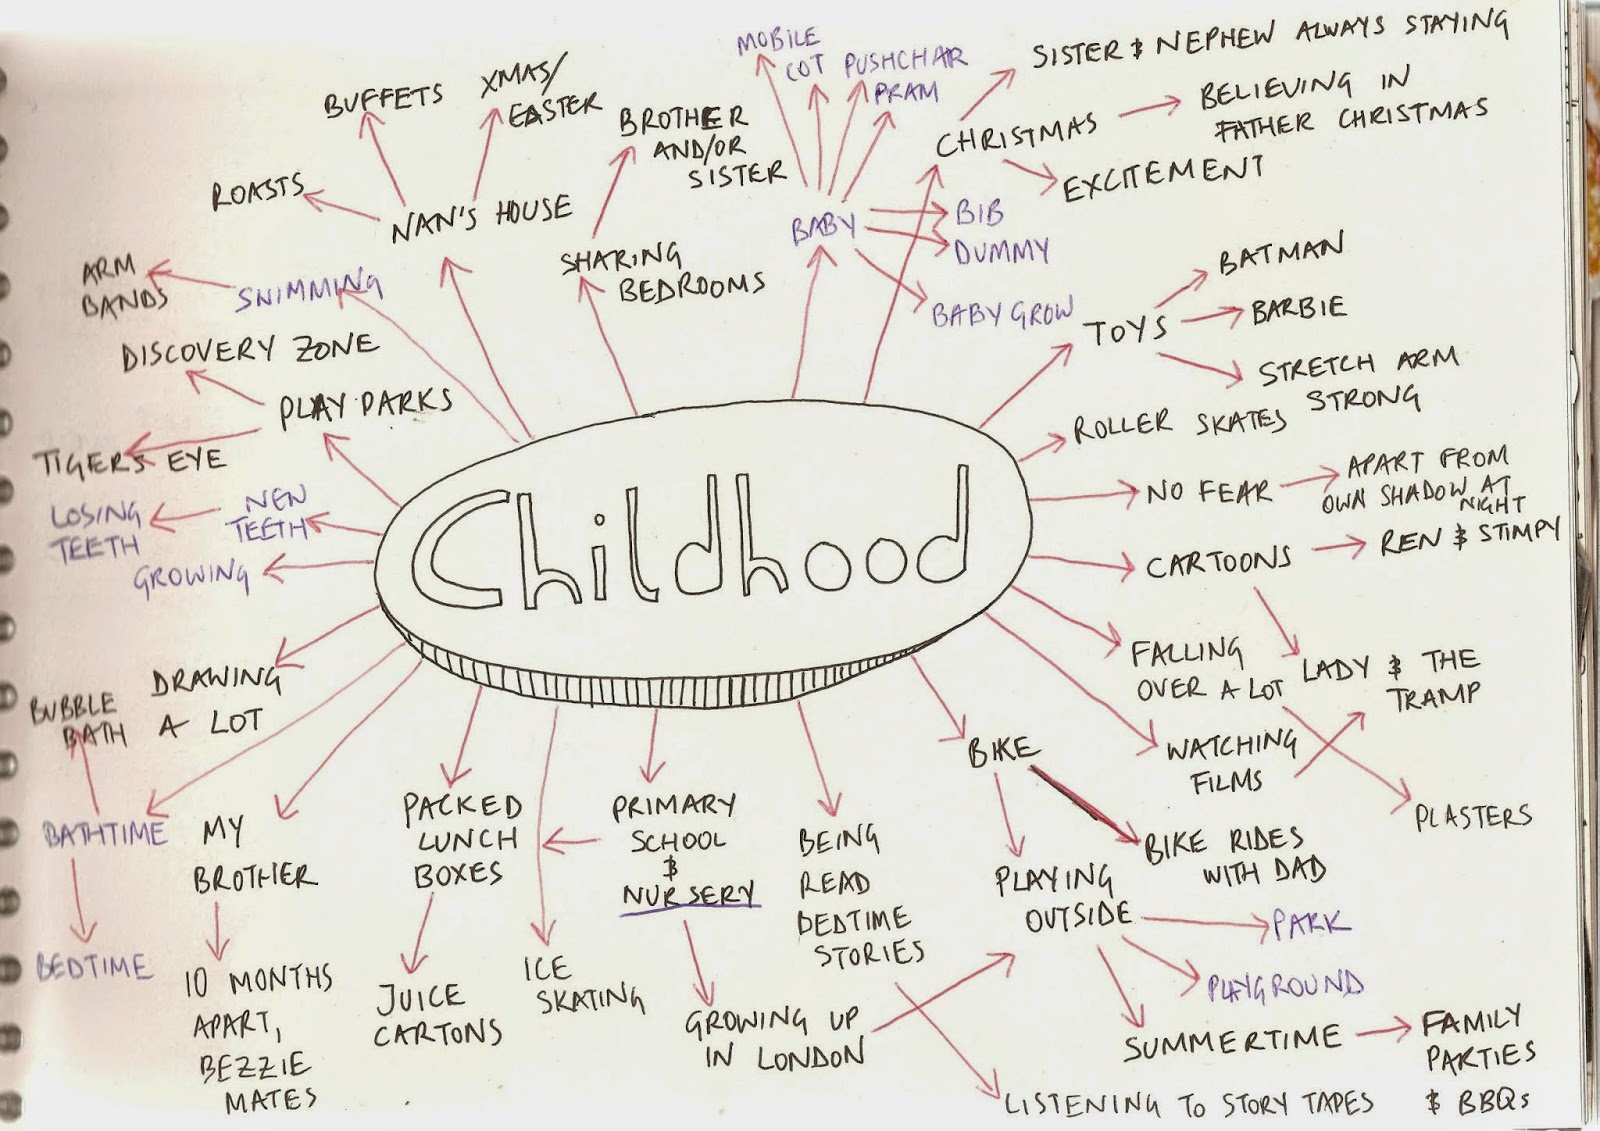 MOBILE
COT
PUSHCHAIR
PRAM
SISTER & NEPHEW ALWAYS STAYING
BUFFETS
XMAS/
EASTER
BROTHER
AND/OR
SISTER
CHRISTMAS
BELIEVING IN
FATHER CHRISTMAS
EXCITEMENT
ROASTS
NAN'S HOUSE
BABY
BIB
DUMMY
BABY GROW
SHARING
BEDROOMS
ARM
BANDS
SWIMMING
TOYS
BATMAN
BARBIE
STRETCH ARM
STRONG
DISCOVERY ZONE
PLAY PARKS
TIGERS EYE
ROLLER SKATES
NO FEAR
APART FROM
OWN SHADOW AT
NIGHT
LOSING
TEETH
NEW
TEETH
GROWING
Childhood
CARTOONS
REN & STIMPY
FALLING
OVER A LOT
LADY & THE
TRAMP
DRAWING
A LOT
BUBBLE
BATH
BIKE
WATCHING
FILMS
PLASTERS
BATHTIME
BEDTIME
MY
BROTHER
10 MONTHS
APART,
BEZZIE
MATES
PACKED
LUNCH
BOXES
JUICE
CARTONS
ICE
SKATING
PRIMARY
SCHOOL
&
NURSERY
GROWING UP
IN LONDON
BEING
READ
BEDTIME
STORIES
LISTENING TO STORY TAPES
PLAYING
OUTSIDE
BIKE RIDES
WITH DAD
PARK
PLAYGROUND
SUMMERTIME
FAMILY
PARTIES
& BBQs